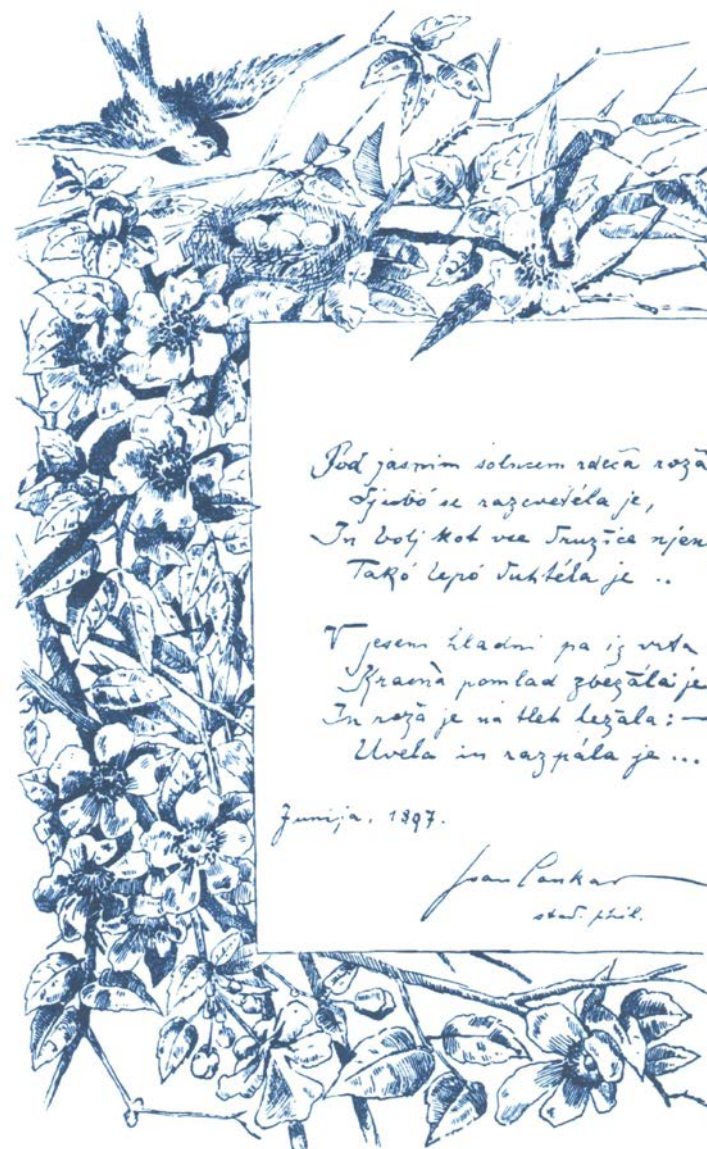 Pod jasnim solncem rdečà rožà
Ljubó se razcvetéla je,
In bolj kot vse družice njen
Takó lepó duhtéla je ..
V jeseni hladni pa iz vrta
Krasnà pomlad zbežála je
In rožà je na tleh ležala: —
Uvela in razpála je ...
Junija, 1897.
Ivan Cankar
stud. phil.